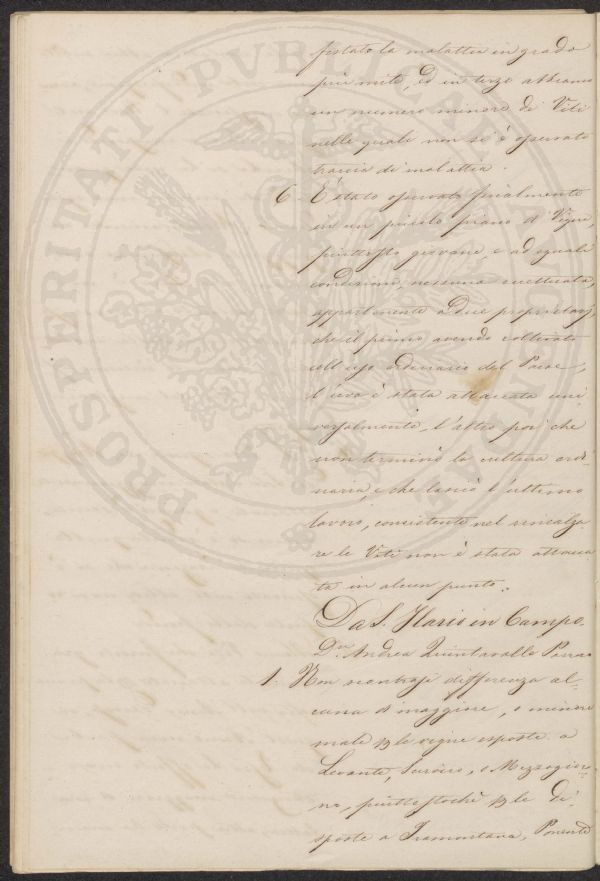 festato la malattia in grado
più mite, ed in terzo abbiamo
un numero minore di Viti
nelle quali non si è operata
traccia di malattia.
6. È stato osservato finalmente
in un piccolo piano di Vigne,
piuttosto giovane, e ad eguali
condizioni, nessuna eccettuata,
appartenente a due proprietarj
che il primo avendo coltivato
coll'uso ordinario del Paese,
l'uva è stata attaccata uni
versalmente, l'altro poi che
non terminò la cultura ordi-
naria, e che lasciò l'ultimo
lavoro, consistente nel rincalza
re le Viti non è stata attacca
ta in alcun punto.
Da S. Ilario in Campo.
Dn. Andrea Quintavalle
1. Non riontrasi differenza al-
cuna di maggiore, o minore
male le vigne esposte a
Levante, Scirocco, e Mezzogior-
no, piuttostochè le di-
sposte a Tramontana, Ponente
PROSPERITATI PUBLICAE AUGENDAE